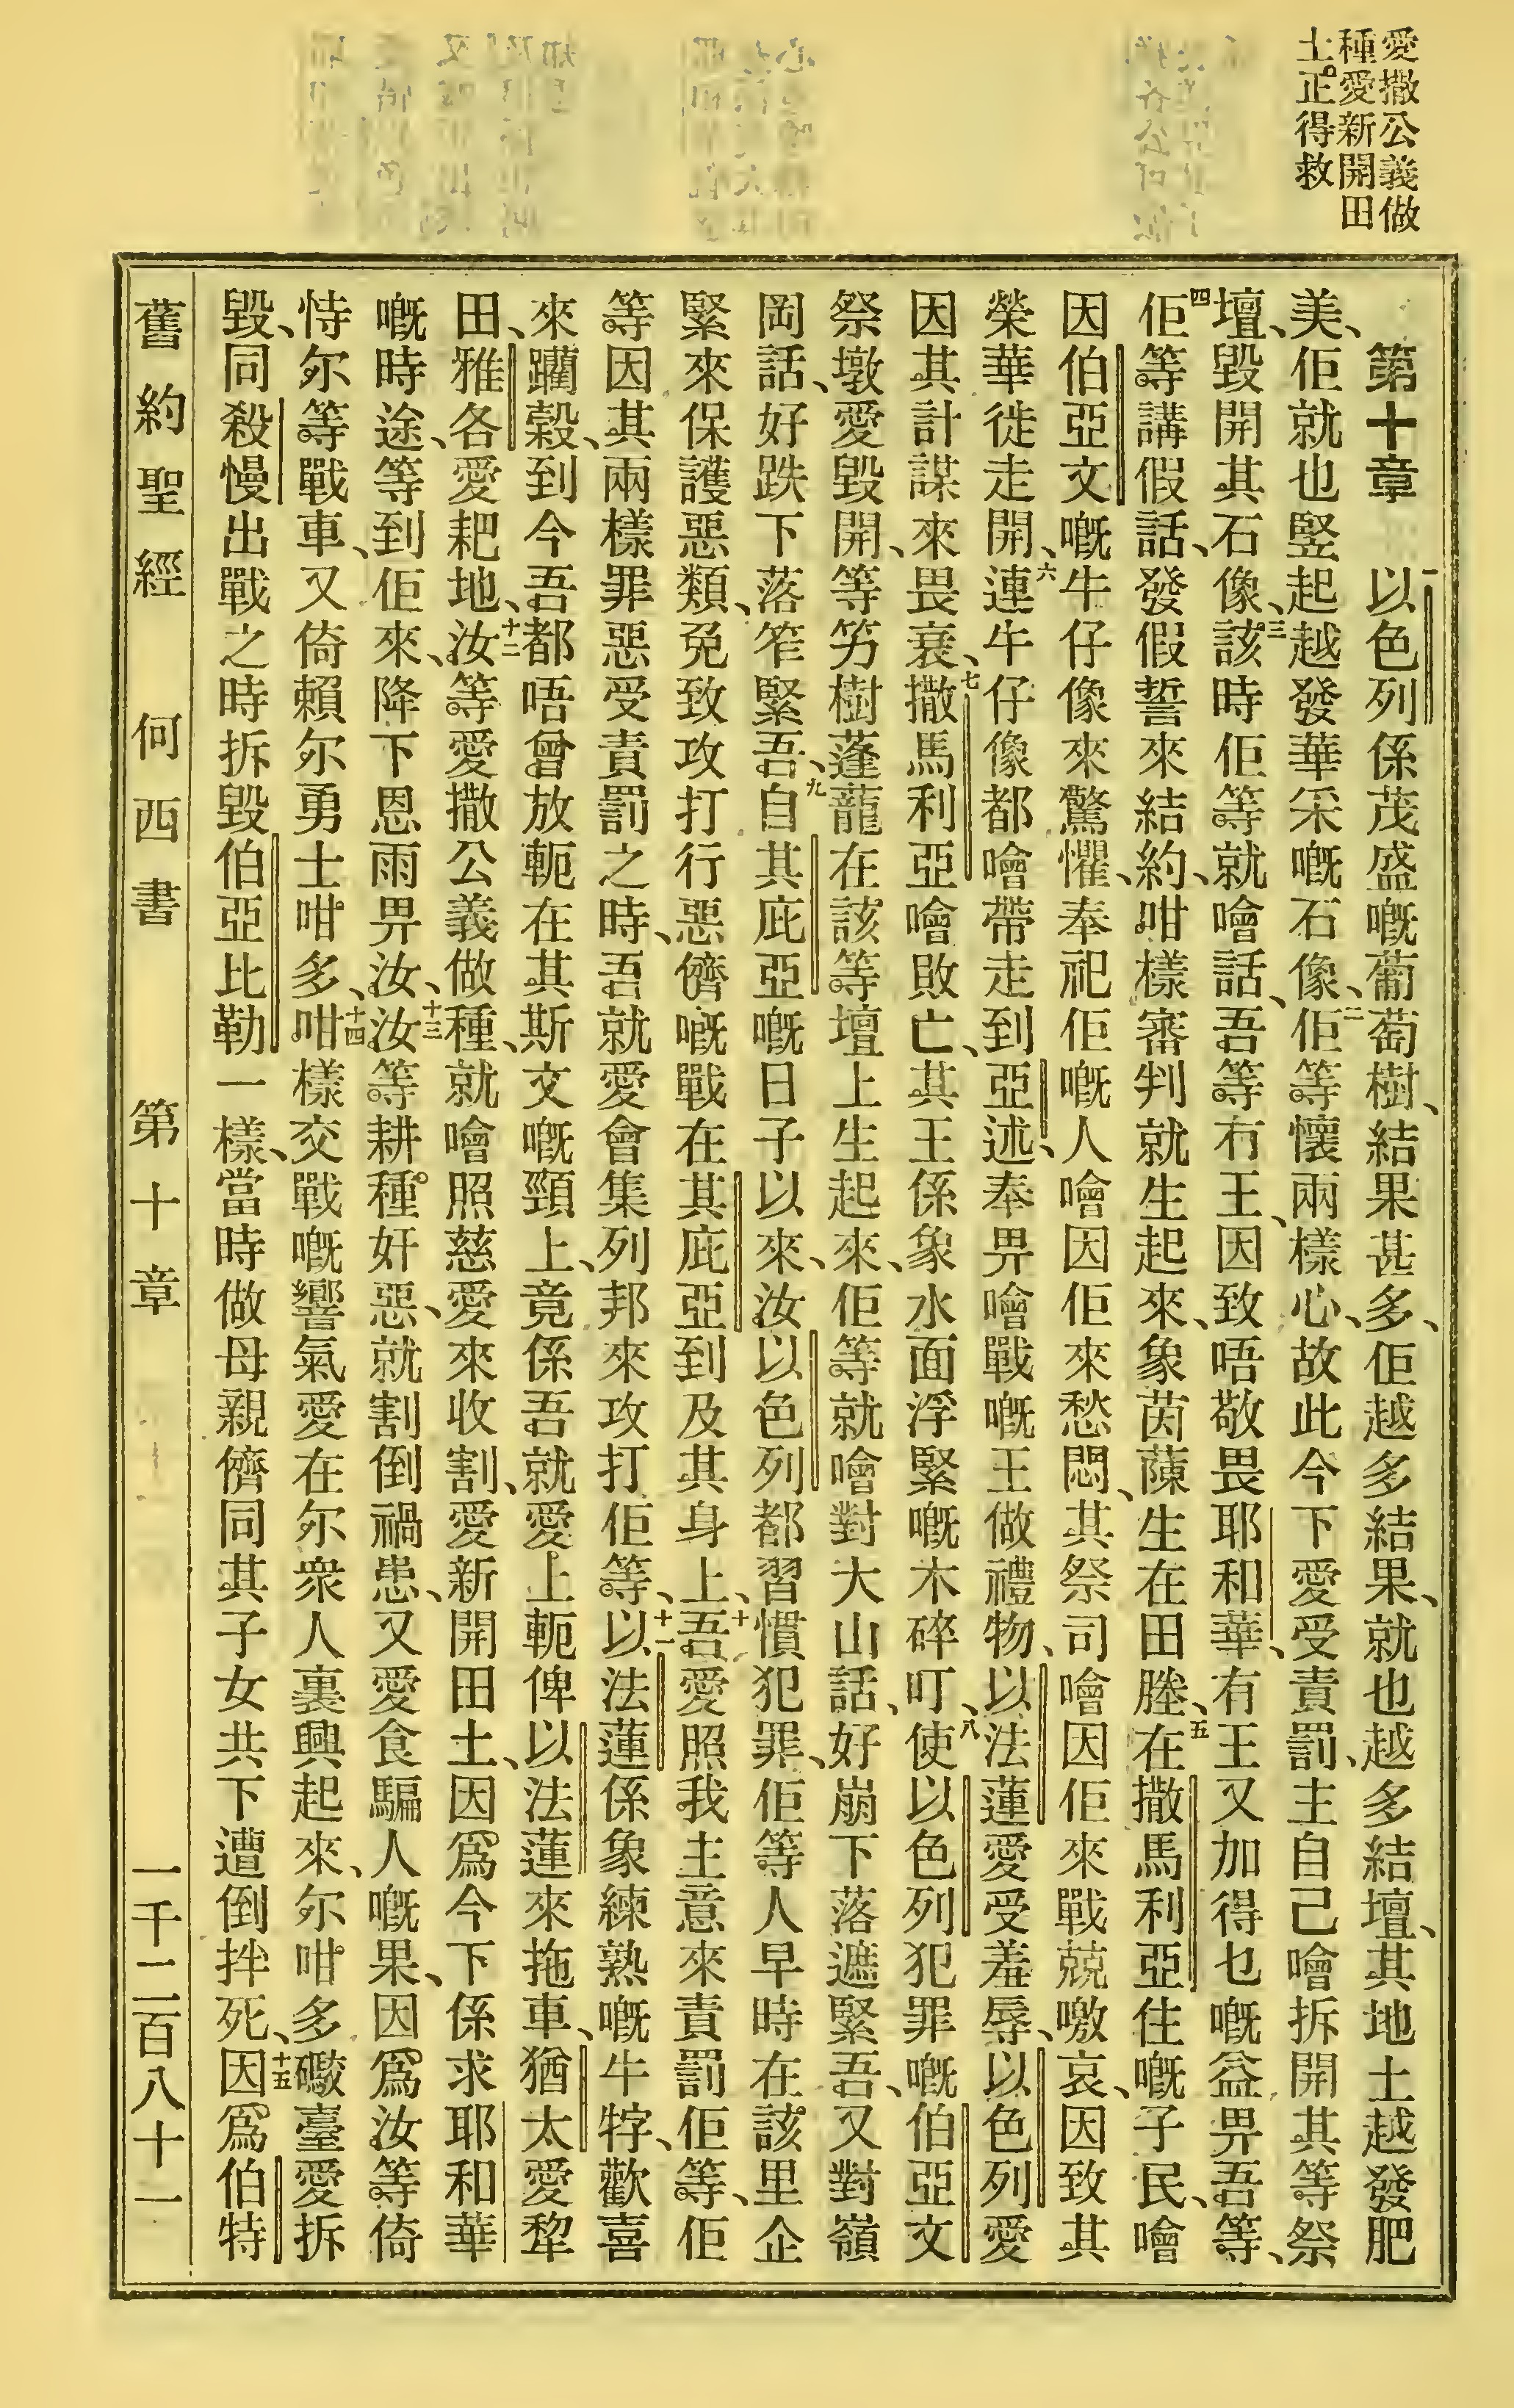 愛撒公義做
種愛新開田
土。正得救
第十章 一以色列係茂盛嘅葡萄樹、結果甚多、佢越多結果、就也越多結壇、其地土越發肥
美、佢就也竪起越發華采嘅石像、二佢等懷兩樣心、故此今下愛受責罰、主自己噲拆開其等祭
壇、毀開其石像、三該時佢等就噲話、吾等冇王、因致唔敬畏耶和華、有王又加得乜嘅益畀吾等、
四佢等講假話、發假誓來結約、咁樣審判就生起來、象茵蔯生在田塍、五在撒馬利亞住嘅子民、噲
因伯亞文嘅牛仔像來驚懼、奉祀佢嘅人噲因佢來愁悶、其祭司噲因佢來戰兢噭哀、因致其
榮華徙走開、六連牛仔像都噲帶走到亞述、奉畀噲戰嘅王做禮物、以法蓮愛受羞辱、以色列愛
因其計謀來畏衰、七撒馬利亞噲敗亡、其王係象水面浮緊嘅木碎叮、八使以色列犯罪嘅伯亞文
祭墩愛毀開、等竻樹蓬蘢在該等壇上生起來、佢等就噲對大山話、好崩下落遮緊吾、又對嶺
岡話、好跌下落笮緊吾、九自其庇亞嘅日子以來、汝以色列都習慣犯罪、佢等人早時在該里企
緊來保護惡類、免致攻打行惡儕嘅戰在其庇亞到及其身上、十吾愛照我主意來責罰佢等、佢
等因其兩樣罪惡受責罰之時、吾就愛會集列邦來攻打佢等、十一以法蓮係象練熟嘅牛牸、歡喜
來躪穀、到今吾都唔曾放軛在其斯文嘅頸上、竟係吾就愛上軛俾以法蓮來拖車、猶太愛犂
田、雅各愛耙地、十二汝等愛撒公義做種、就噲照慈愛來收割、愛新開田土、因爲今下係求耶和華
嘅時途、等到佢來、降下恩雨畀汝、十三汝等耕種奸惡、就割倒禍患、又愛食騙人嘅果、因爲汝等倚
恃尔等戰車、又倚賴尔勇士咁多、十四咁樣交戰嘅響氣愛在尔衆人裏興起來、尔咁多礮臺愛拆
毀、同殺慢出戰之時拆毀伯亞比勒一樣、當時做母親儕同其子女共下遭倒拌死、十五因爲伯特
舊約聖經 何西書 第十章 一千二百八十一